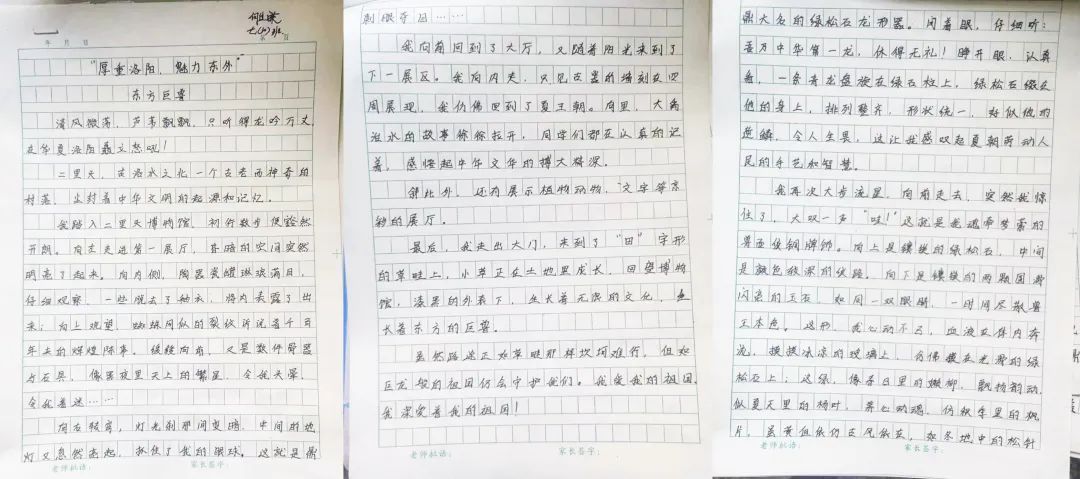 一
何
七(10)班
年 月 日
“厚重洛阳,魅力东外”
东方巨兽
清风微荡,芦苇飘飘,只听得龙吟万丈,
在华夏洛阳矗立怒吼!
二里头,在洛水文化一个古老而神奇的
村落,尘封着中华文明的起源和记忆。
我踏入二里头博物馆,初行数步便豁然
开朗。向左走进第一展厅,昏暗的空间突然
明亮了起来。向内侧,陶器瓷罐琳琅满目,
仔细观察,一些脱去了釉衣,将内表露了出
来;向上观望,蜘蛛网似的裂纹诉说着千百
年去的辉煌陈事。缓缓向前,又是数件骨器
与石具,像黑夜里天上的繁星,令我头晕,
令我着迷……
向右转弯,灯光刹那间变暗,中间的地
灯又忽然亮起,抓住了我的眼球。这就是鼎
老师批语: 家长签字:
刺眼夺目……
我向前回到了大厅,又随着阳光来到了
下一展区。我向内走,只见古器的墙刻在四
周展现,我仿佛回到了夏王朝。向里,大禹
治水的故事徐徐拉开,同学们都在认真的记
着,感悟起中华文华的博大精深。
除此外,还有展示植物动物、文字等奇
妙的展厅。
最后,我走出大门,来到了“田”字形
的草畦上,小草正在土地里成长,回望博物
馆,漆黑的外表下,生长着无限的文化,生
长着东方的巨兽。
虽然路途正如草畦那样坎坷难行,但如
巨龙般的祖国仍会守护我们。我爱我的祖国,
我深爱着我的祖国!
老师批语: 家长签字:
鼎大名的绿松石龙形器。闭着眼,仔细听:
吾乃中华第一龙,休得无礼!睁开眼,认真
看,一条青龙盘旋在绿石柱上,绿松石缀在
他的身上,排列整齐,形状统一,好似他的
龙鳞,令人生畏,这让我感叹起夏朝劳动人
民的手艺和智慧。
我再次大步流星,向前走去,突然我惊
住了,大叹一声“哇!”这就是我魂牵梦萦的
兽面纹铜牌饰。向上是镶嵌的绿松石,中间
是颜色较深的纹路。向下是镶嵌的两颗圆滑
闪亮的玉石,如同一双眼睛,一时间尽散兽
王本色。这形,我心动不已,血液在体内奔
流,摸摸冰凉的玻璃上,仿佛摸在光滑的绿
松石上;这绿,像春日里的嫩柳,飘扬韵动,
似夏天里的杨叶,荡心动魂,仿秋季里的枫
片,虽黄但依仍古风依在,如冬地中的松针
老师批语: 家长签字: